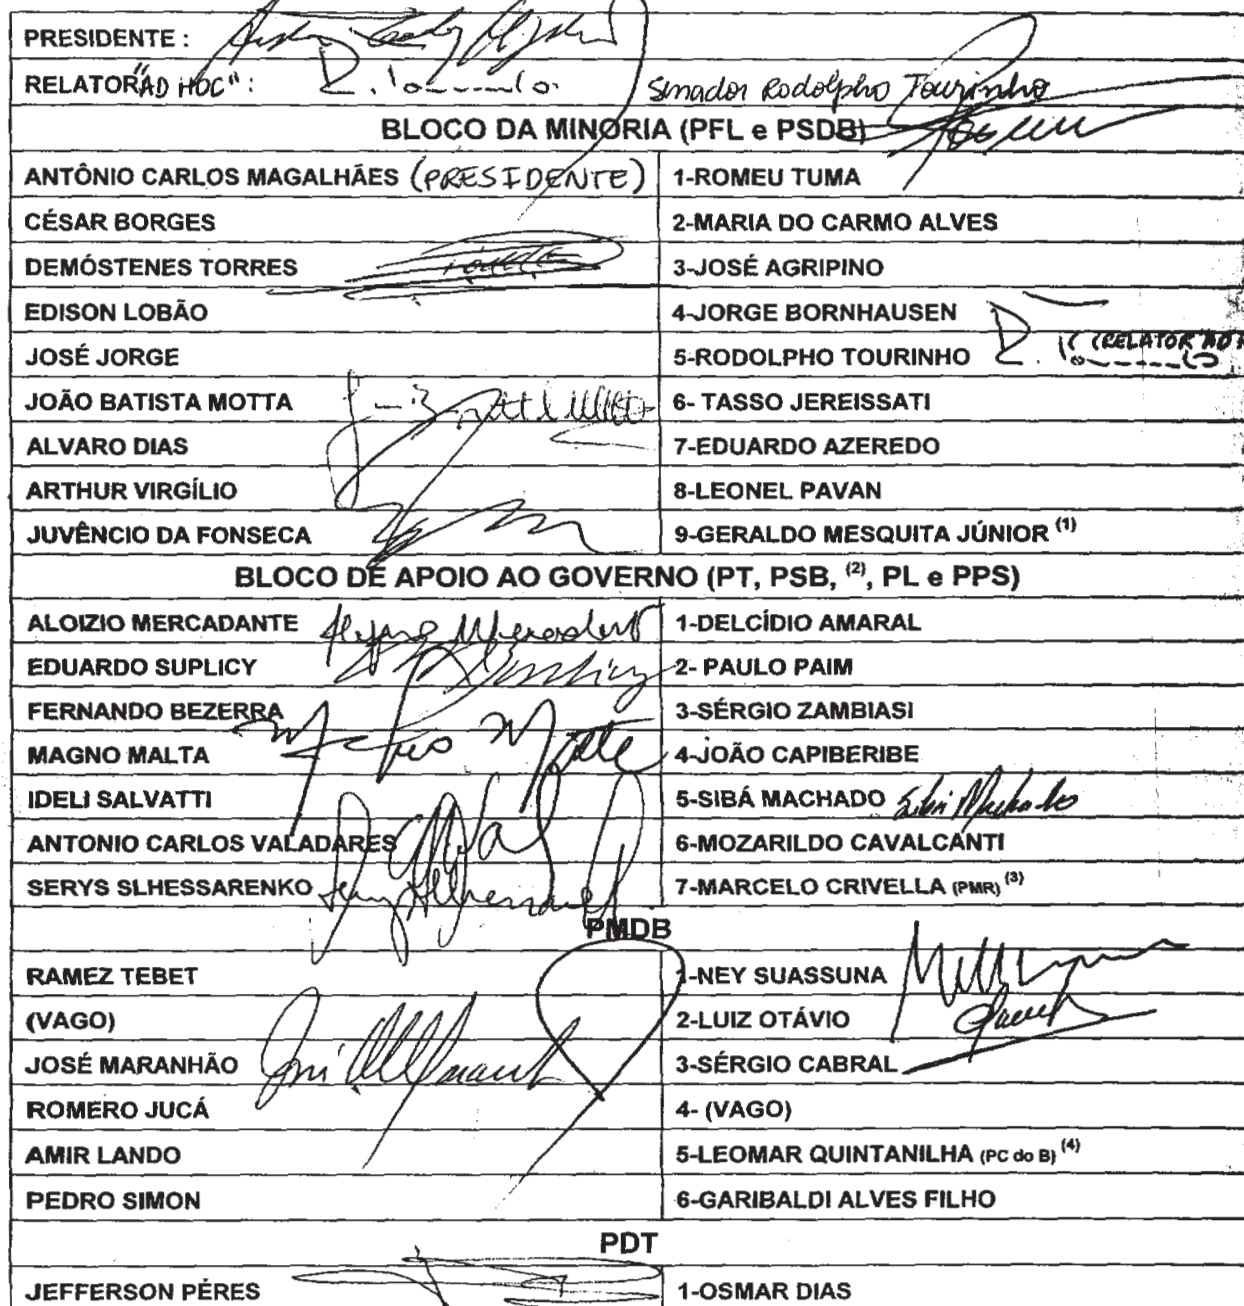 PRESIDENTE :
RELATOR "AD HOC" : Senador Rodolpho Tourinho
BLOCO DA MINORIA (PFL e PSDB)
ANTÔNIO CARLOS MAGALHÃES (PRESIDENTE) 1-ROMEU TUMA
CÉSAR BORGES 2-MARIA DO CARMO ALVES
DEMÓSTENES TORRES 3-JOSÉ AGRIPINO
EDISON LOBÃO 4-JORGE BORNHAUSEN
JOSÉ JORGE 5-RODOLPHO TOURINHO (RELATOR AD
JOÃO BATISTA MOTTA 6- TASSO JEREISSATI
ALVARO DIAS 7-EDUARDO AZEREDO
ARTHUR VIRGÍLIO 8-LEONEL PAVAN
JUVÊNCIO DA FONSECA 9-GERALDO MESQUITA JÚNIOR (1)
BLOCO DE APOIO AO GOVERNO (PT, PSB, (2), PL e PPS)
ALOIZIO MERCADANTE 1-DELCÍDIO AMARAL
EDUARDO SUPLICY 2- PAULO PAIM
FERNANDO BEZERRA 3-SÉRGIO ZAMBIASI
MAGNO MALTA 4-JOÃO CAPIBERIBE
IDELI SALVATTI 5-SIBÁ MACHADO Sibá Machado
ANTONIO CARLOS VALADARES 6-MOZARILDO CAVALCANTI
SERYS SLHESSARENKO 7-MARCELO CRIVELLA (PMR) (3)
PMDB
RAMEZ TEBET 1-NEY SUASSUNA
(VAGO) 2-LUIZ OTÁVIO
JOSÉ MARANHÃO 3-SÉRGIO CABRAL
ROMERO JUCÁ 4- (VAGO)
AMIR LANDO 5-LEOMAR QUINTANILHA (PC do B) (4)
PEDRO SIMON 6-GARIBALDI ALVES FILHO
PDT
JEFFERSON PÉRES 1-OSMAR DIAS